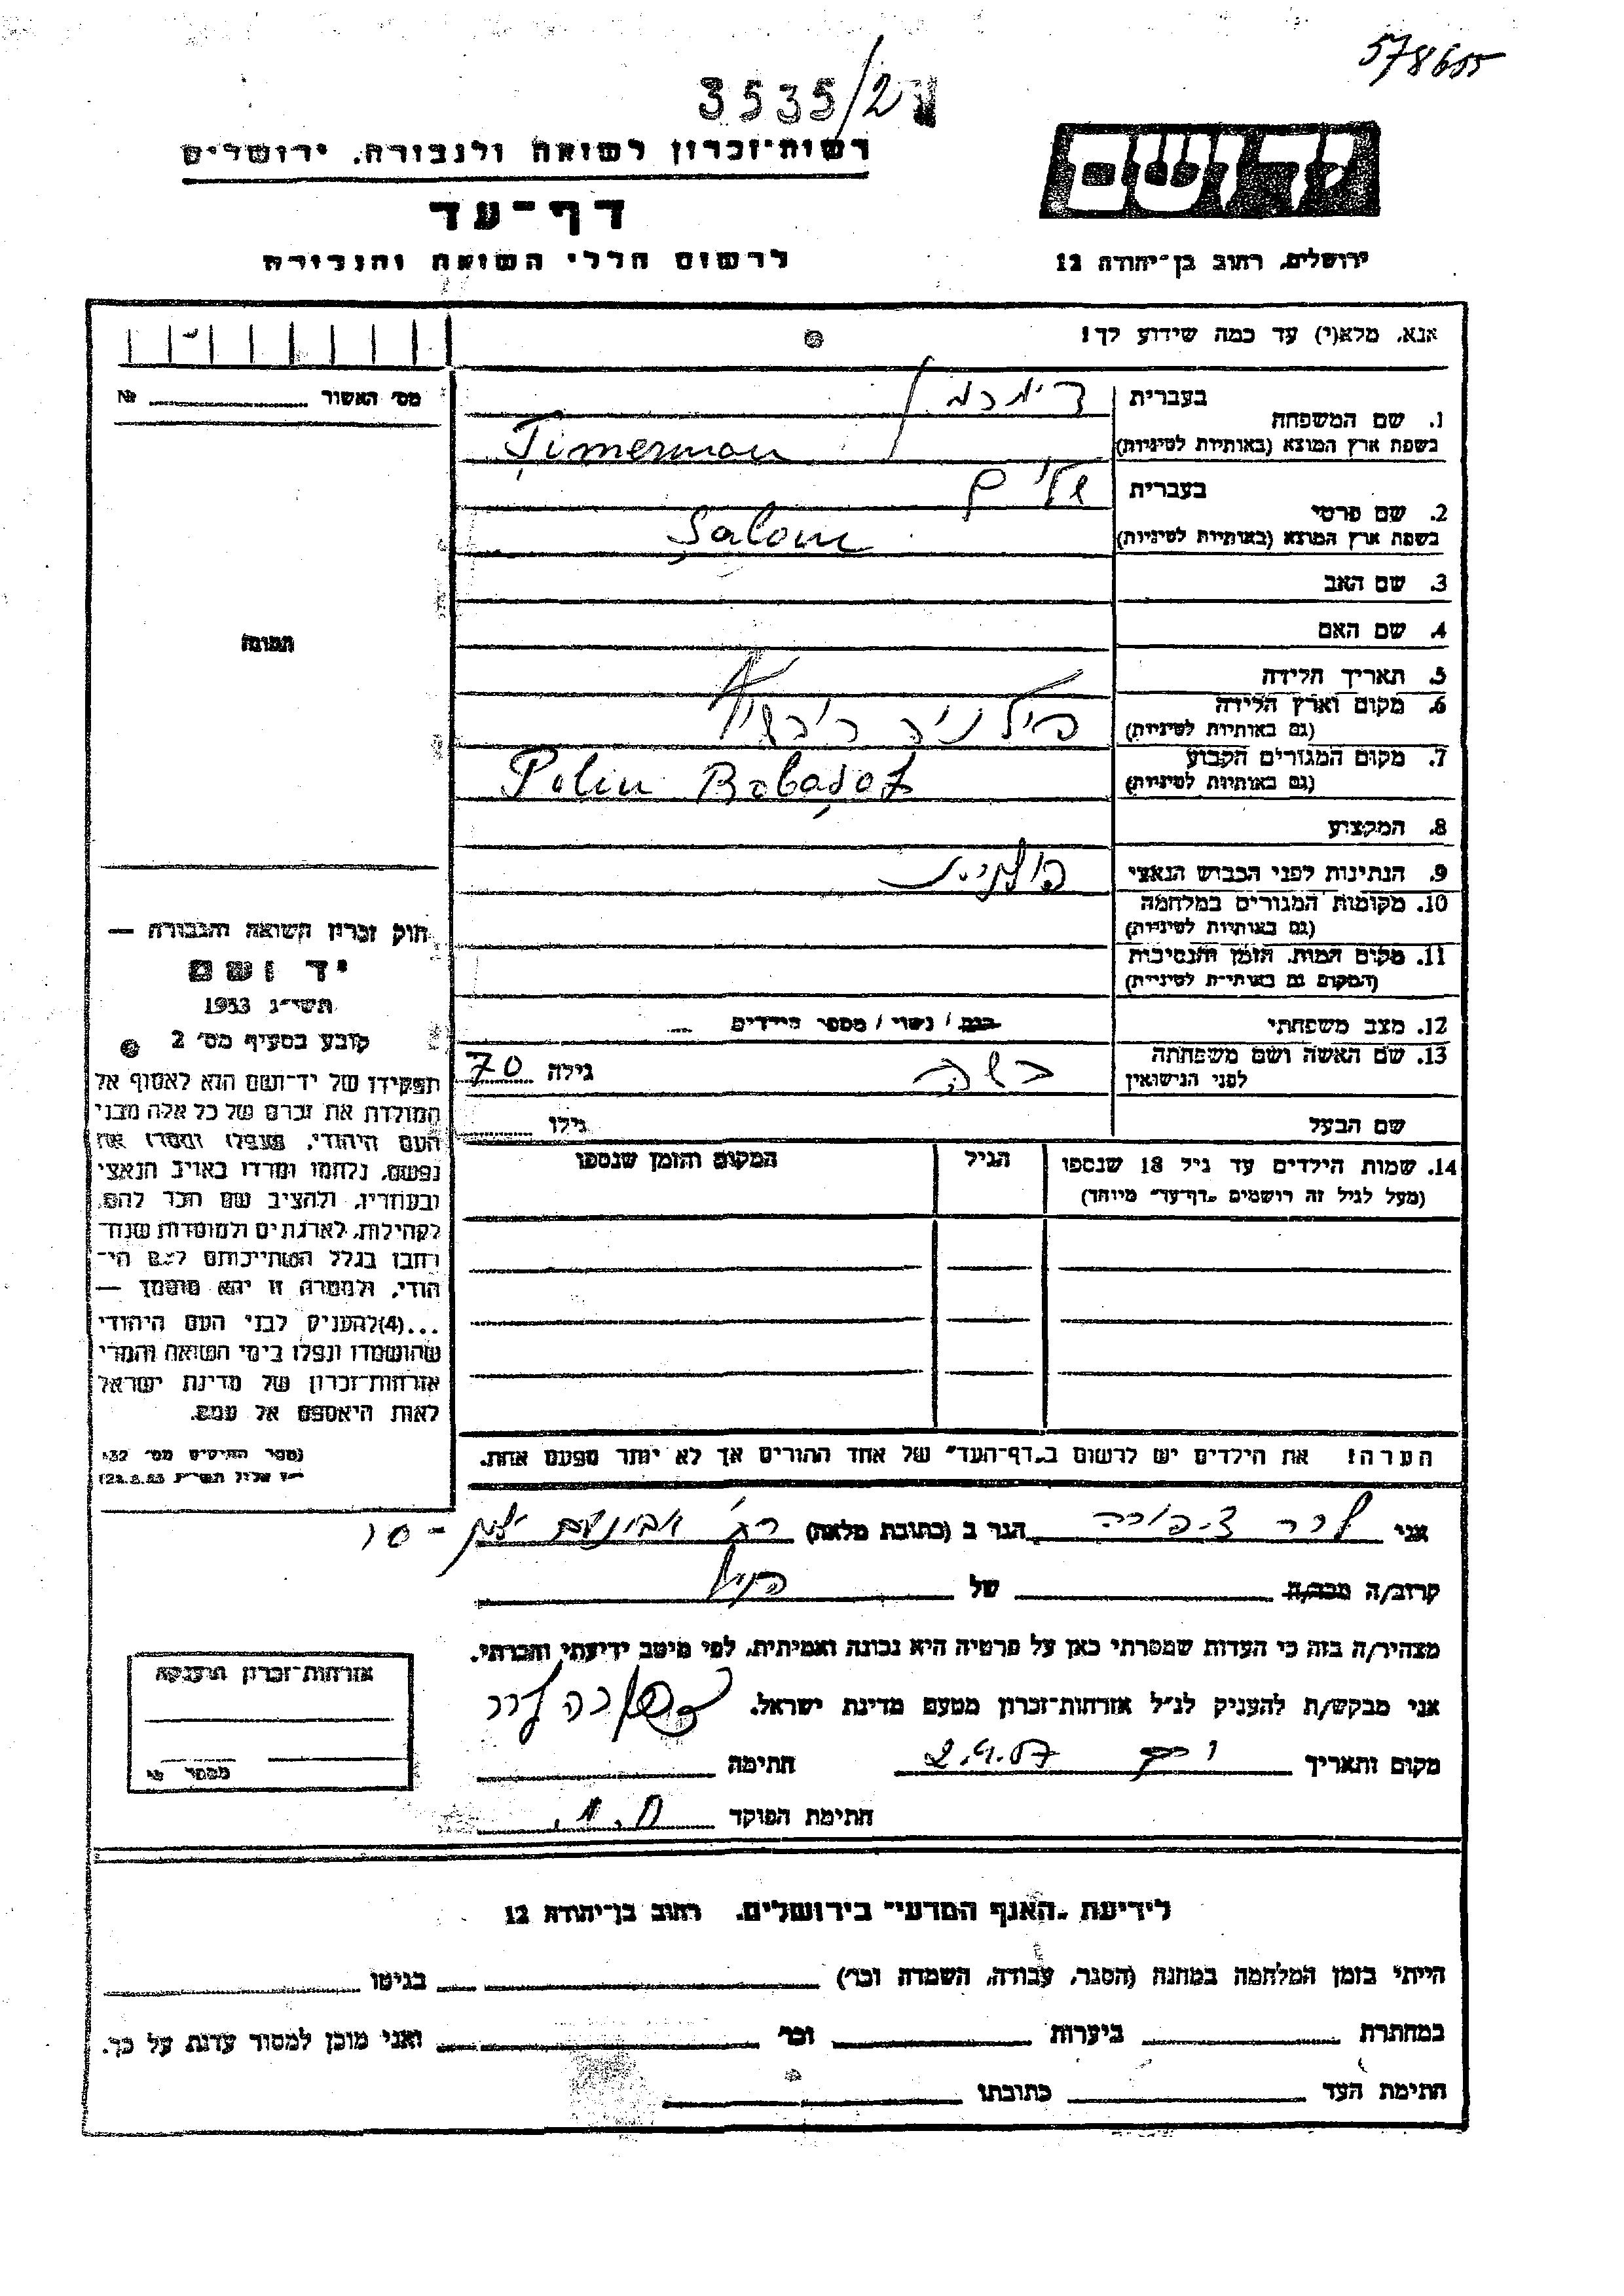 578655
3535/2
רשות-זכרון לשואה ולגבורה, ירושלים
יד ושם
דף-עד
לרשום חללי השואה והגבורה
ירושלים, רחוב בן-יהודה 12
אנא, מלא(י) עד כמה שידוע לך!
מס׳ האשור № 
1. שם המשפחה
בעברית
בשפת ארץ המוצא (באותיות לטיניות) Timerman
2. שם פרטי
בעברית
בשפת ארץ המוצא (באותיות לטיניות) Salom
3. שם האב
4. שם האם
תמונה
5. תאריך הלידה
6. מקום וארץ הלידה
(גם באותיות לטיניות)
7. מקום המגורים הקבוע
(גם באותיות לטיניות) Polin
8. המקצוע
9. הנתינות לפני הכבוש הנאצי
10. מקומות המגורים במלחמה
(גם באותיות לטיניות)
11. מקום המות, הזמן והנסיבות
(המקום גם באותיות לטיניות)
12. מצב משפחתי רווק / נשוי / מספר הילדים
13. שם האשה ושם משפחתה
לפני הנישואין גילה 70
שם הבעל גילו
14. שמות הילדים עד גיל 18 שנספו הגיל המקום והזמן שנספו
(מעל לגיל זה רושמים „דף-עד” מיוחד)
חוק זכרון השואה והגבורה —
יד ושם
תשי״ג 1953
קובע בסעיף מס׳ 2
תפקידו של יד-ושם הוא לאסוף אל
המולדת את זכרם של כל אלה מבני
העם היהודי, שנפלו ומסרו את
נפשם, נלחמו ומרדו באויב הנאצי
ובעוזריו, ולהציב שם וזכר להם,
לקהילות, לארגונים ולמוסדות שנח-
רבו בגלל השתייכותם לעם הי-
הודי, ולמטרה זו יהא מוסמך —
...(4) להעניק לבני העם היהודי
שהושמדו ונפלו בימי השואה והמרי
אזרחות-זכרון של מדינת ישראל
לאות היאספם אל עמם.
הערה! את הילדים יש לרשום ב„דף-העד” של אחד ההורים אך לא יותר מפעם אחת.
אני לרר ציפורה הגר ב (כתובת מלאה)
קרוב/ה מכר/ה של
מצהיר/ה בזה כי העדות שמסרתי כאן על פרטיה היא נכונה ואמיתית, לפי מיטב ידיעתי והכרתי.
אני מבקש/ת להעניק לנ״ל אזרחות-זכרון מטעם מדינת ישראל.
מקום ותאריך 2.9.57 חתימה
חתימת הפוקד
אזרחות-זכרון הוענקה
מספר
לידיעת „האגף המדעי” בירושלים, רחוב בן-יהודה 12
הייתי בזמן המלחמה במחנה (הסגר, עבודה, השמדה וכו׳) בגיטו
במחתרת ביערות וכו׳ ואני מוכן למסור עדות על כך.
חתימת העד כתובתו